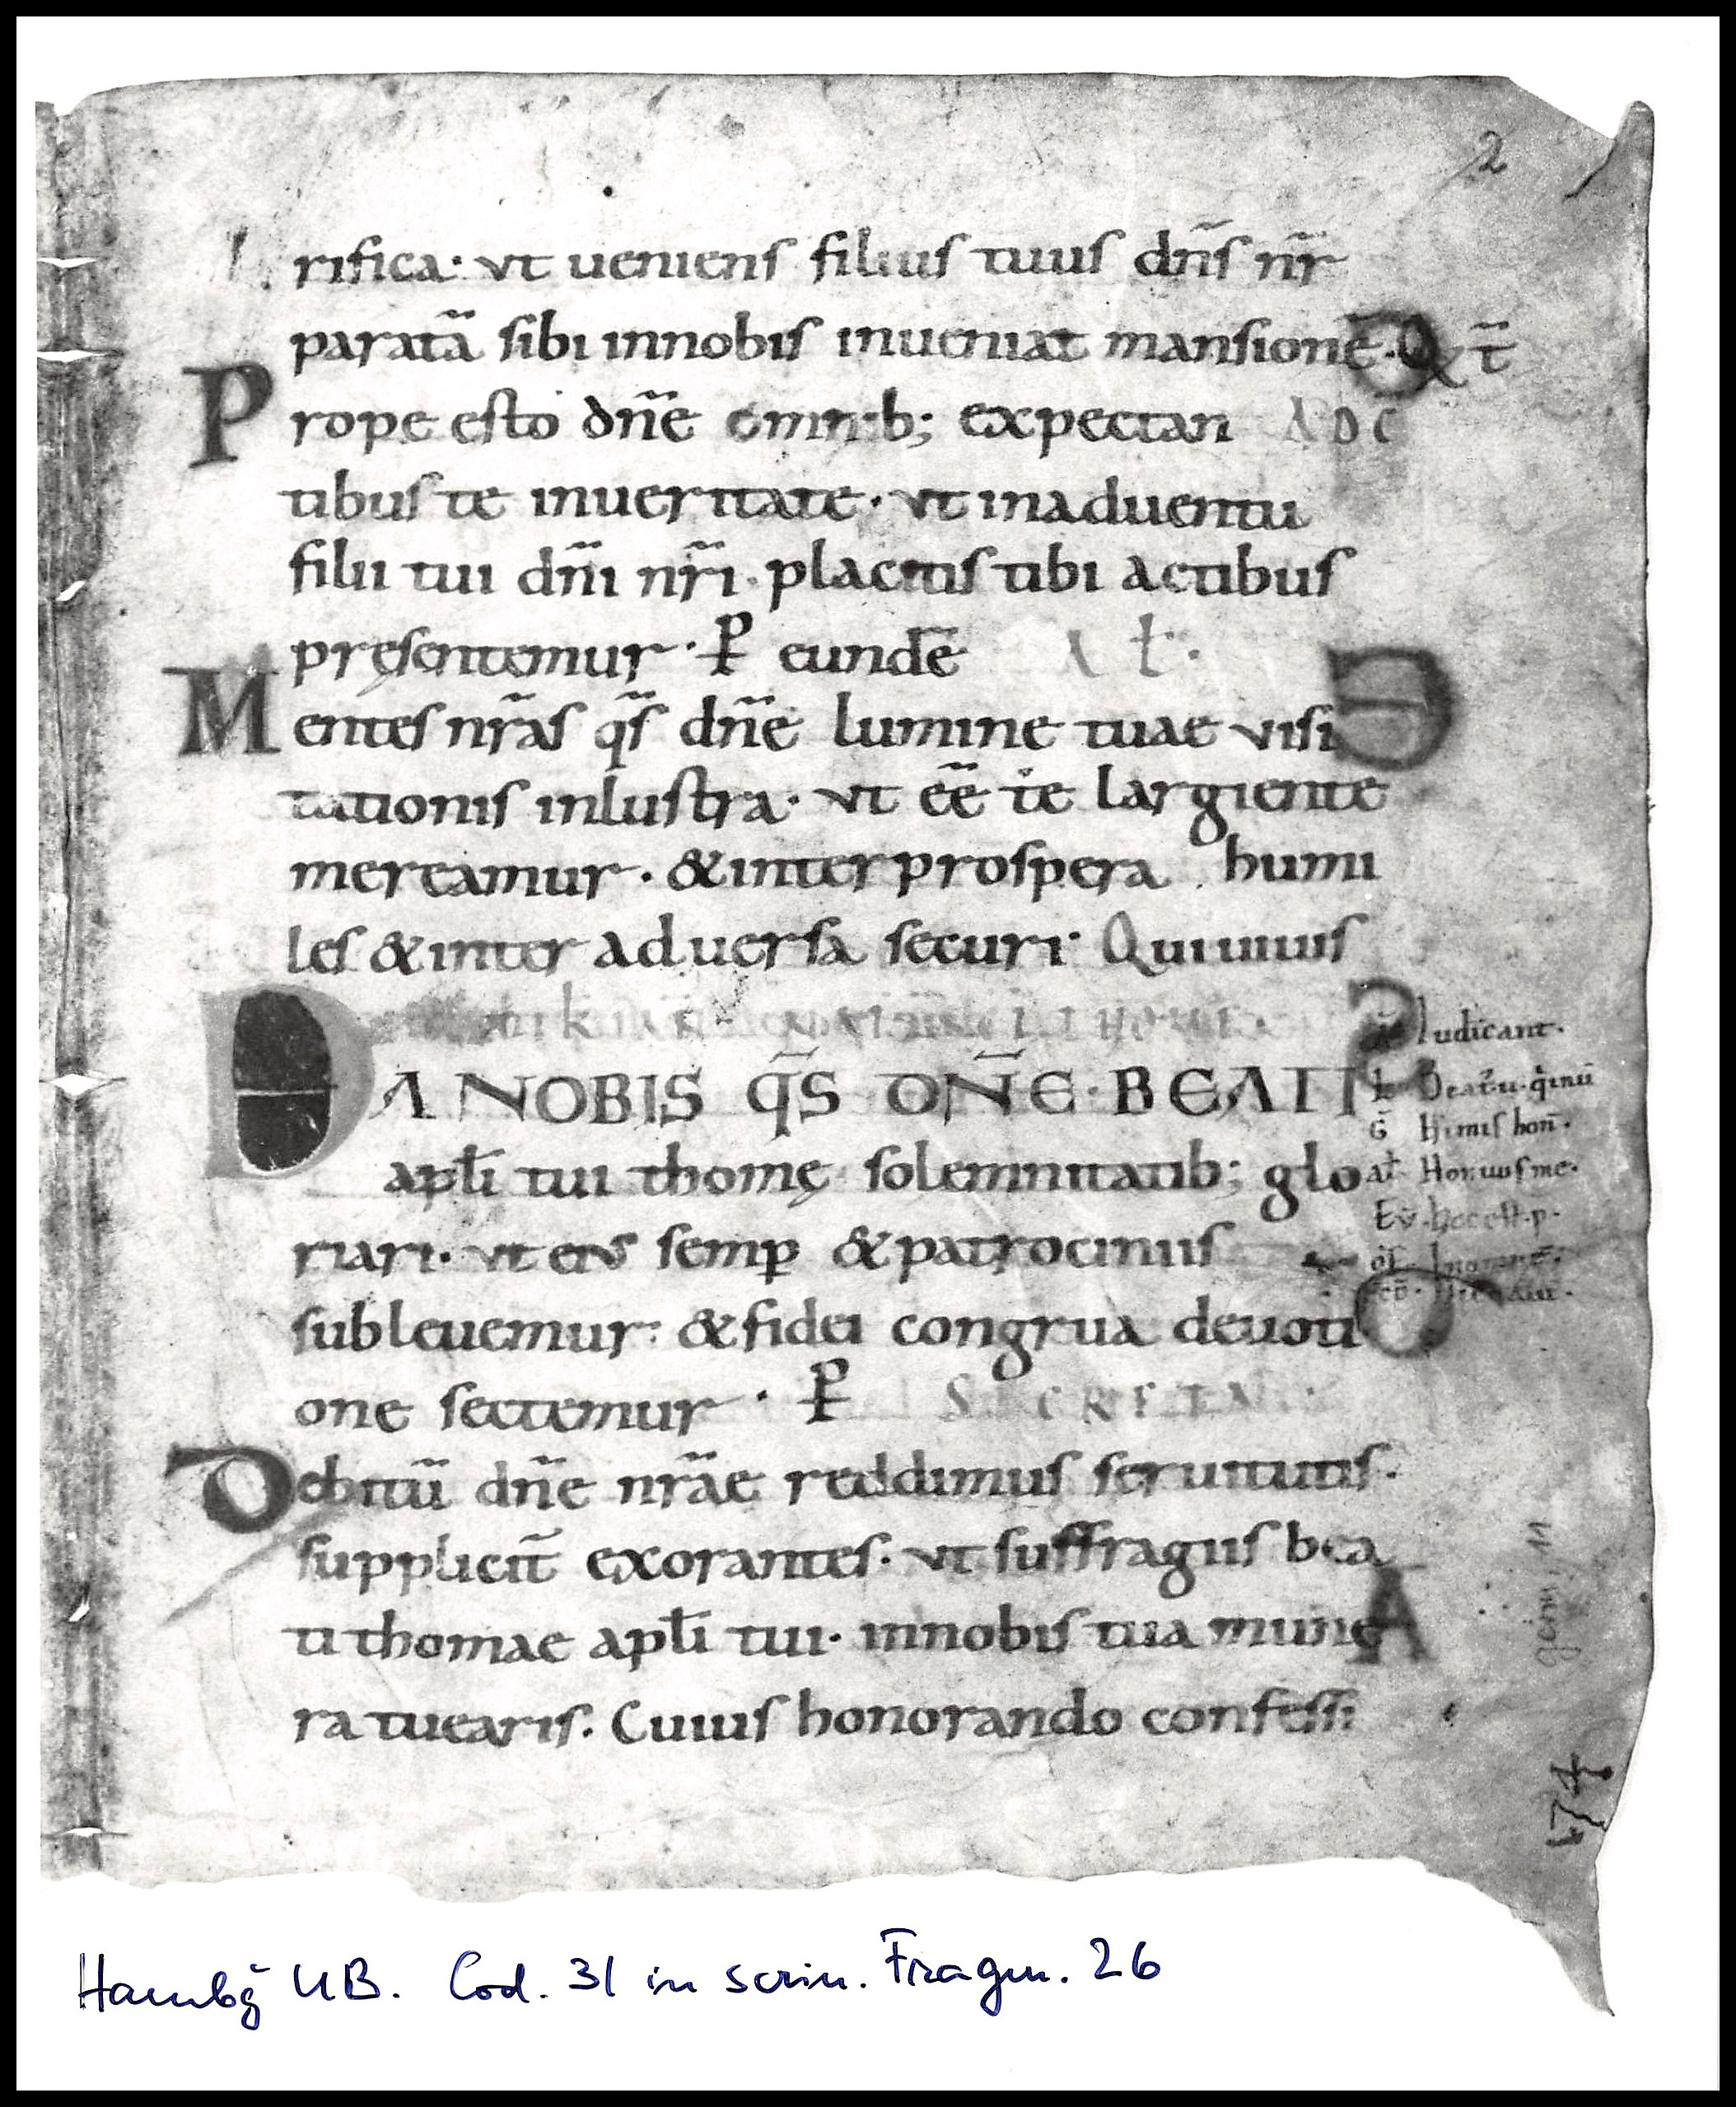 2
rifica· vt ueniens filius tuus dn̄s nr̄
paratā sibi innobis inueniat mansionē· Q &t̄
Prope esto dn̄e omnib; expectan ADC
tibus te inueritate· vt inaduentu
filii tui dn̄i nr̄i· placitis tibi actibus
pręsentemur· P̱ eundē AƚL·
Mentes nr̄as qs̄ dn̄e lumine tuae visi
tationis inlustra· vt eē te largiente
mereamur· &inter prospera humi
les &inter aduersa securi· Quiuiuis
DA NOBIS qS̄ DN̄E· BEATI
apƚi tui thomę solemnitatib; glo
riari· vt eius semꝑ &patrociniis
subleuemur· &fidei congrua deuoti
one sectemur· P̱ SECRETA
Debitū dn̄e nr̄ae reddimus seruitutis·
suppliciт̄ exorantes· vt suffragiis bea
ti thomae apƚi tui· innobis tua mune
ra tuearis. Cuius honorando confessi
Iudicant·
Ḡ Nimis hon̄·
Non uos me·
474
Hambg UB. Cod. 31 in scrin. Fragm. 26